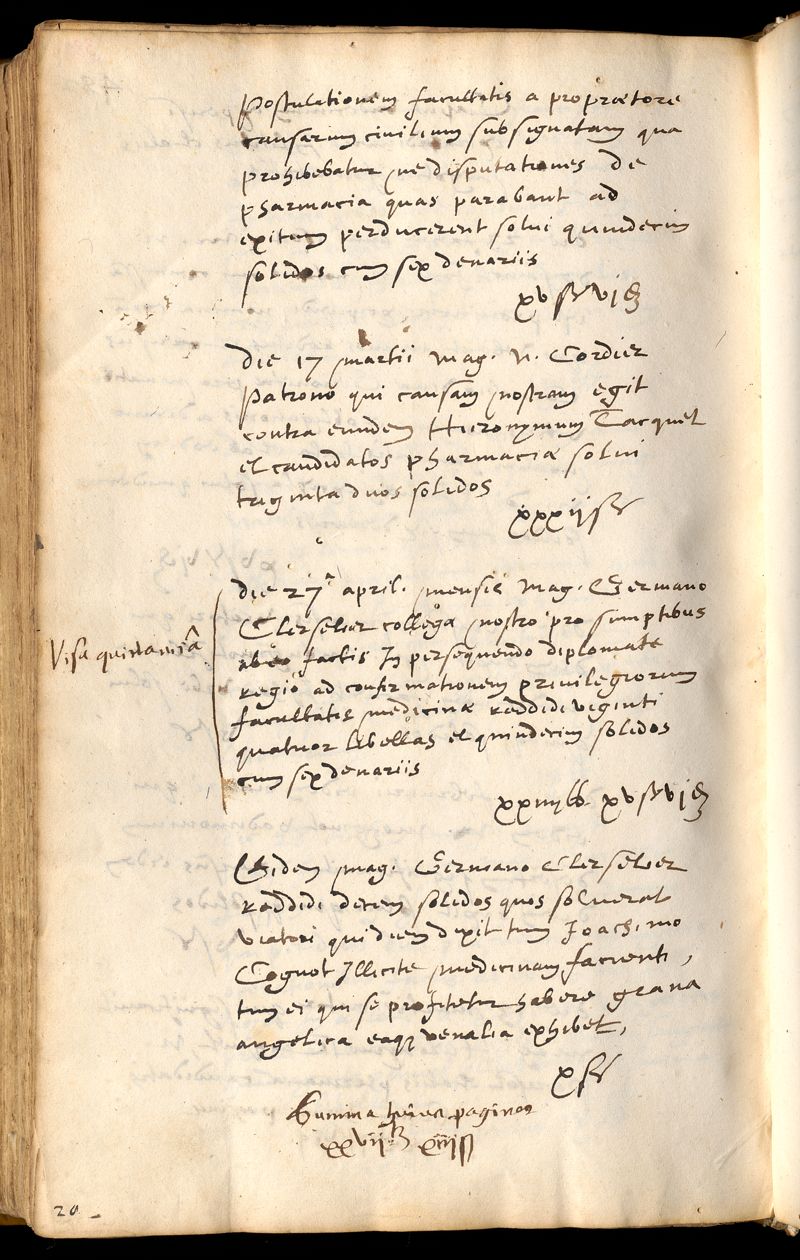 Postulationem facultatis a propraetore
causarum civilium subsignatam qua
prohibebatur ne disputationes de
pharmacia quas parabant ad
exitum perducerent solvi quindecim
solidos cum sex denariis
xv s vj d
Die 17 martii mag. N. Cordier
Patrono qui causam nostram egit
contra eundem Hieronymum Tacquet
et candidatos pharmaciæ solvi
triginta duos solidos
xxxij s
Die 27ª april. mensis mag. Germano
Clerselier collegæ nostro pro sumptibus
Visa quictantia
ab eo factis In persequendo diplomate
regio ad confirmationem privilegiorum
facultatis medicinæ reddidi viginti
quatuor libellas et quindecim solidos
cum sex denariis
xxiiij lb xv s vj d
Eidem mag. Germano Clerselier
reddidi decem solidos quos solverat
viatori qui diem dixit tum Joachimo
Cognot Illicite medicinam facienti,
tum ei qui se profitetur habere grana
angelica eaq; venalia exhibet,
x s
Summa paginæ
xxvij lb xiij s
20